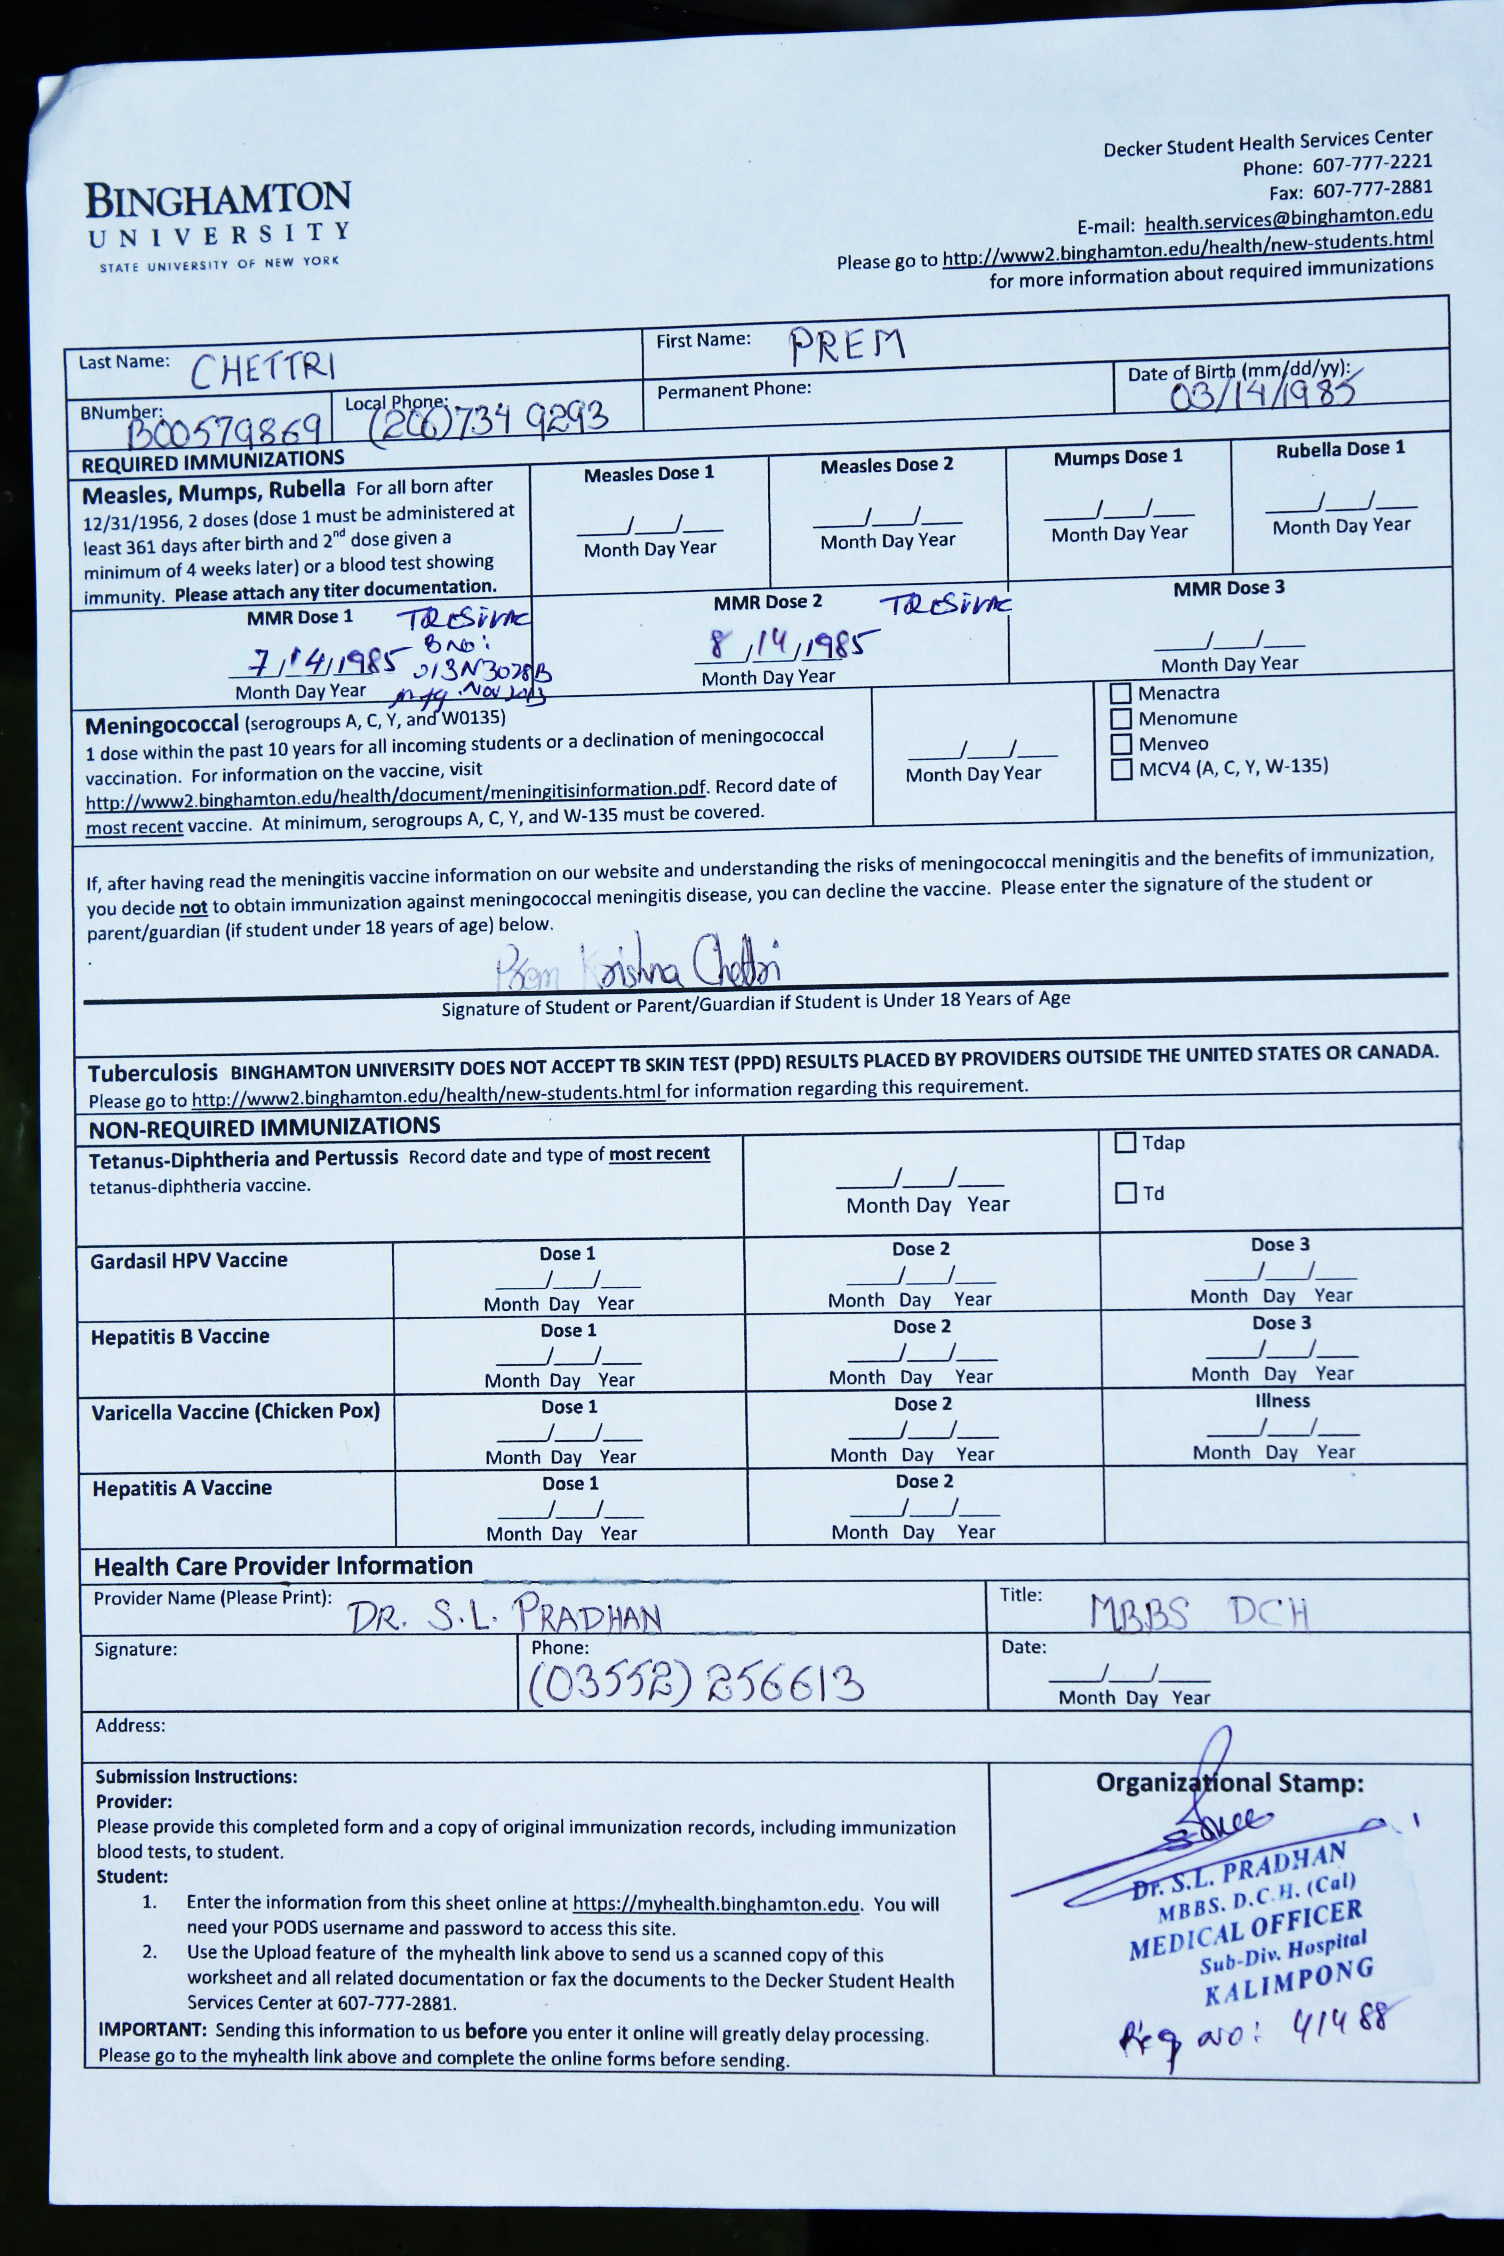 BINGHAMTON
UNIVERSITY
STATE UNIVERSITY OF NEW YORK
Decker Student Health Services Center
Phone: 607-777-2221
Fax: 607-777-2881
E-mail: health.services@binghamton.edu
Please go to http://www2.binghamton.edu/health/new-students.html
for more information about required immunizations
Last Name: CHETTRI
First Name: PREM
BNumber: B00579869
Local Phone: (206)734 9293
Permanent Phone:
Date of Birth (mm/dd/yy): 03/14/1985
REQUIRED IMMUNIZATIONS
Measles, Mumps, Rubella For all born after
12/31/1956, 2 doses (dose 1 must be administered at
least 361 days after birth and 2nd dose given a
minimum of 4 weeks later) or a blood test showing
immunity. Please attach any titer documentation.
Measles Dose 1
___/___/___
Month Day Year
Measles Dose 2
___/___/___
Month Day Year
Mumps Dose 1
___/___/___
Month Day Year
Rubella Dose 1
___/___/___
Month Day Year
MMR Dose 1 TRESiVAC
B No:
7/14/1985 013N3028B
Month Day Year Mfg. Nov 2013
MMR Dose 2 TRESiVAC
8/14/1985
Month Day Year
MMR Dose 3
___/___/___
Month Day Year
Meningococcal (serogroups A, C, Y, and W0135)
1 dose within the past 10 years for all incoming students or a declination of meningococcal
vaccination. For information on the vaccine, visit
http://www2.binghamton.edu/health/document/meningitisinformation.pdf. Record date of
most recent vaccine. At minimum, serogroups A, C, Y, and W-135 must be covered.
___/___/___
Month Day Year
Menactra
Menomune
Menveo
MCV4 (A, C, Y, W-135)
If, after having read the meningitis vaccine information on our website and understanding the risks of meningococcal meningitis and the benefits of immunization,
you decide not to obtain immunization against meningococcal meningitis disease, you can decline the vaccine. Please enter the signature of the student or
parent/guardian (if student under 18 years of age) below.
Prem Krishna Chettri
Signature of Student or Parent/Guardian if Student is Under 18 Years of Age
Tuberculosis BINGHAMTON UNIVERSITY DOES NOT ACCEPT TB SKIN TEST (PPD) RESULTS PLACED BY PROVIDERS OUTSIDE THE UNITED STATES OR CANADA.
Please go to http://www2.binghamton.edu/health/new-students.html for information regarding this requirement.
NON-REQUIRED IMMUNIZATIONS
Tetanus-Diphtheria and Pertussis Record date and type of most recent
tetanus-diphtheria vaccine.
___/___/___
Month Day Year
Tdap
Td
Gardasil HPV Vaccine
Dose 1
___/___/___
Month Day Year
Dose 2
___/___/___
Month Day Year
Dose 3
___/___/___
Month Day Year
Hepatitis B Vaccine
Dose 1
___/___/___
Month Day Year
Dose 2
___/___/___
Month Day Year
Dose 3
___/___/___
Month Day Year
Varicella Vaccine (Chicken Pox)
Dose 1
___/___/___
Month Day Year
Dose 2
___/___/___
Month Day Year
Illness
___/___/___
Month Day Year
Hepatitis A Vaccine
Dose 1
___/___/___
Month Day Year
Dose 2
___/___/___
Month Day Year
Health Care Provider Information
Provider Name (Please Print): DR. S.L. PRADHAN
Title: MBBS DCH
Signature:
Phone: (03552) 256613
Date:
___/___/___
Month Day Year
Address:
Submission Instructions:
Provider:
Please provide this completed form and a copy of original immunization records, including immunization
blood tests, to student.
Student:
1. Enter the information from this sheet online at https://myhealth.binghamton.edu. You will
need your PODS username and password to access this site.
2. Use the Upload feature of the myhealth link above to send us a scanned copy of this
worksheet and all related documentation or fax the documents to the Decker Student Health
Services Center at 607-777-2881.
IMPORTANT: Sending this information to us before you enter it online will greatly delay processing.
Please go to the myhealth link above and complete the online forms before sending.
Organizational Stamp:
Dr. S.L. PRADHAN
MBBS. D.C.H. (Cal)
MEDICAL OFFICER
Sub-Div. Hospital
KALIMPONG
Reg no: 41488